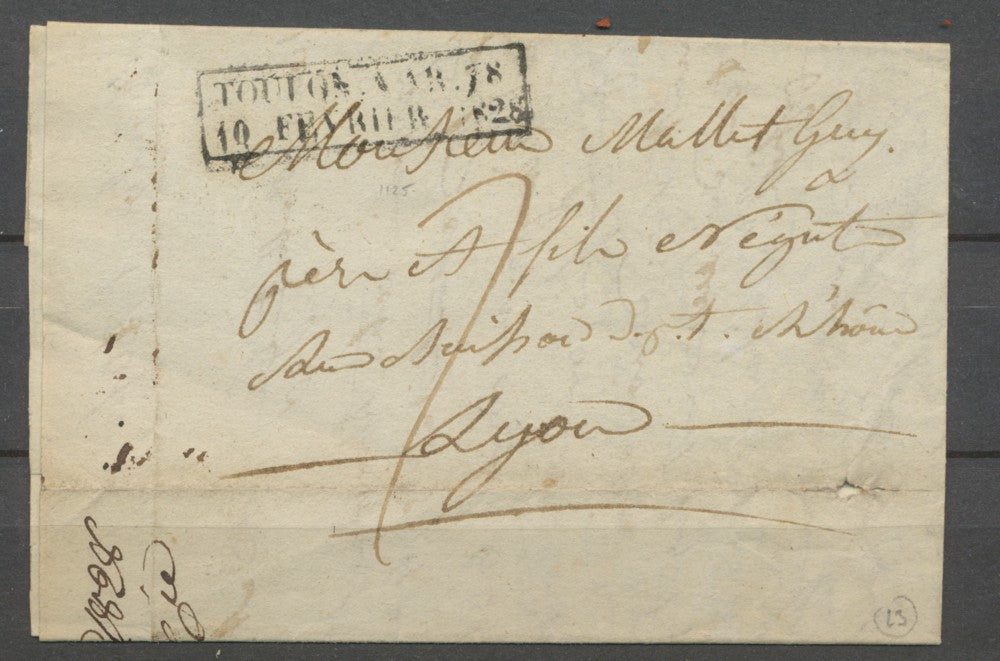 TOULON. VAR. 78
10 FEVRIER 1828
Monsieur Mallet Guy
1125
7
père et fils Négt
Rue Buisson Dept. Rhône
Lyon
13